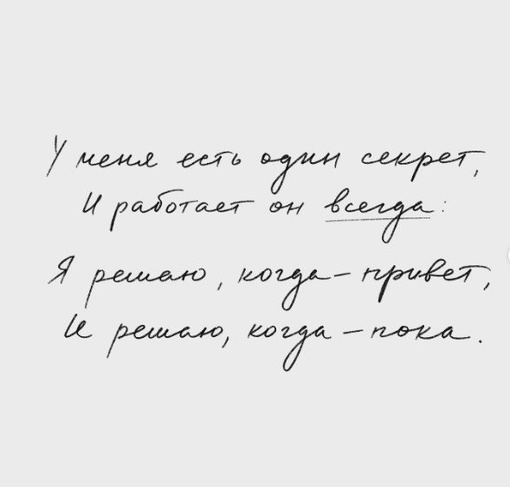 У меня есть один секрет,
И работает он всегда:
Я решаю, когда – привет,
И решаю, когда – пока.